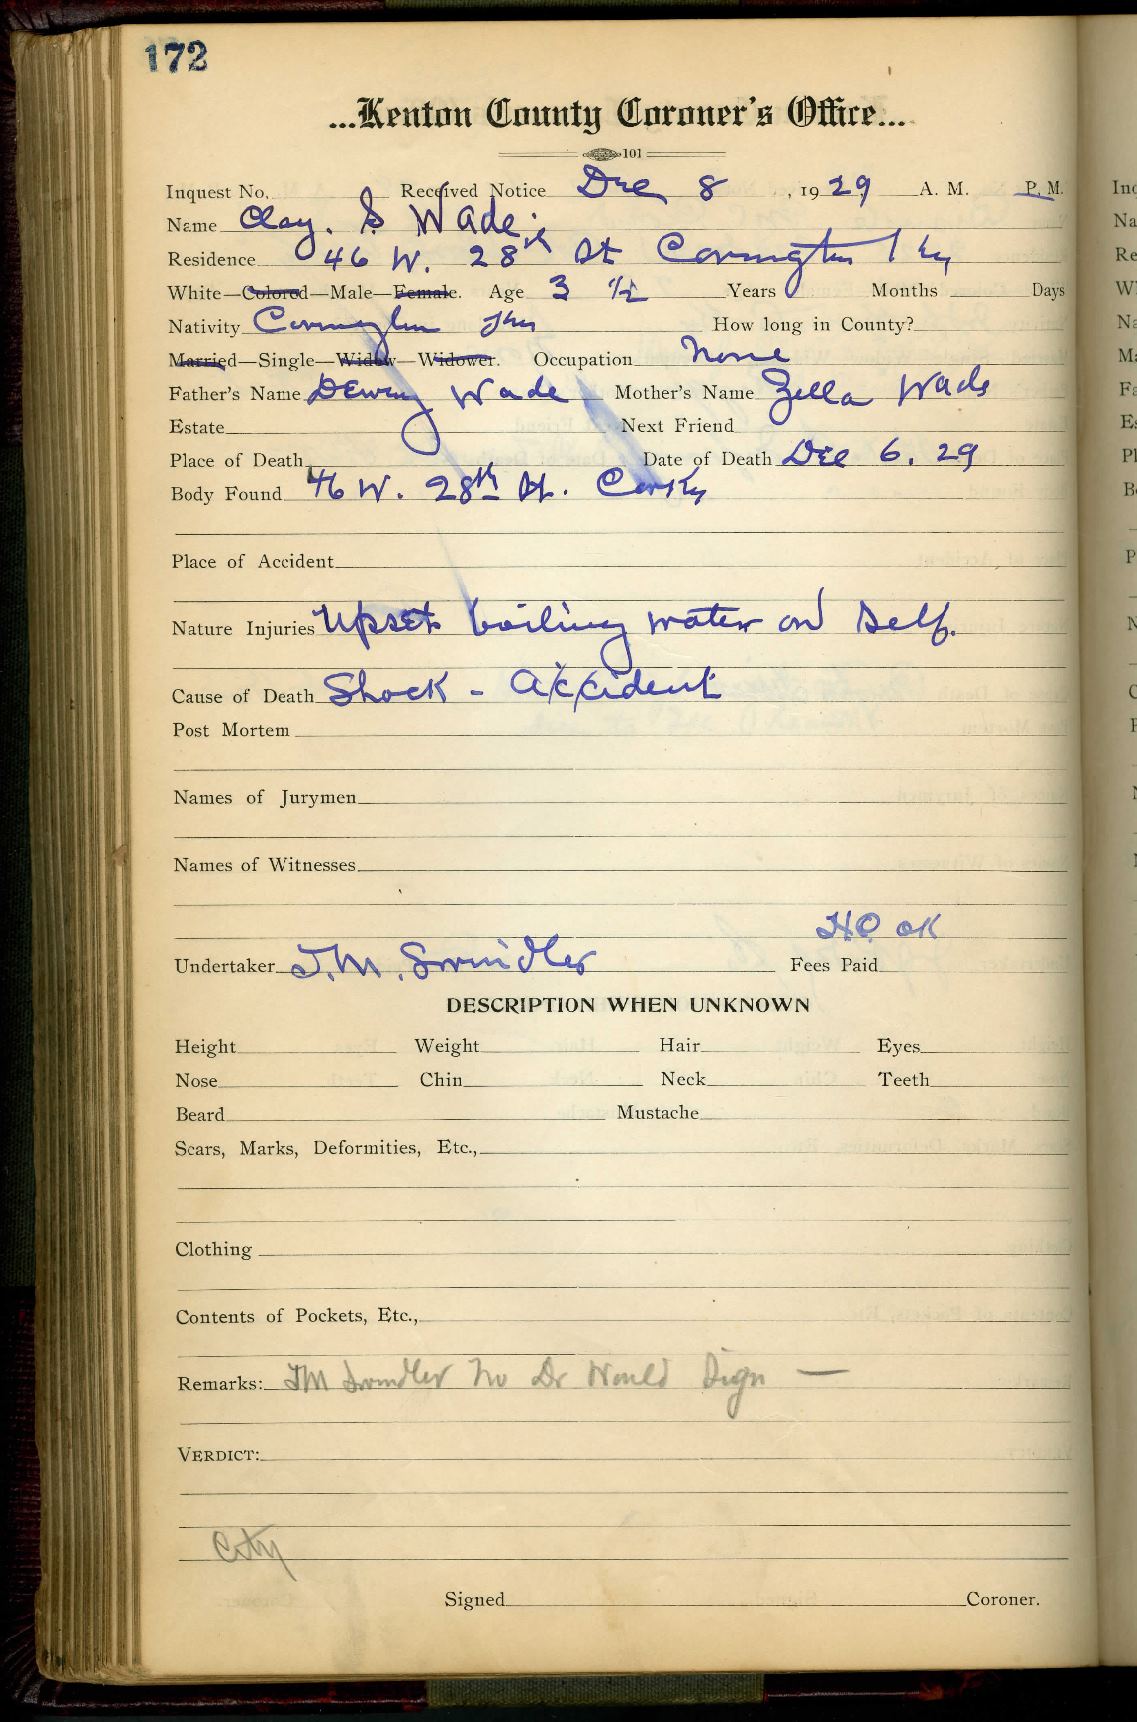 172
...Kenton County Coroner's Office...
101
Inquest No. Received Notice Dec 8, 1929 A. M. P. M.
Name Clay. S Wade.
Residence 46 W. 28th St Covington Ky
White—Colored—Male—Female. Age 3 ½ Years Months Days
Nativity Covington Ky How long in County?
Married—Single—Widow—Widower. Occupation None
Father's Name Dewey Wade Mother's Name Zella Wade
Estate Next Friend
Place of Death Date of Death Dec 6. 29
Body Found 46 W. 28th St. Cov Ky
Place of Accident
Nature Injuries Upset boiling water on Self.
Cause of Death Shock - Accident
Post Mortem
Names of Jurymen
Names of Witnesses
H.O. OK
Undertaker J.M. Swindler Fees Paid
DESCRIPTION WHEN UNKNOWN
Height Weight Hair Eyes
Nose Chin Neck Teeth
Beard Mustache
Scars, Marks, Deformities, Etc.,
Clothing
Contents of Pockets, Etc.,
Remarks: JM Swindler No Dr Would Sign —
VERDICT:
City
Signed Coroner.